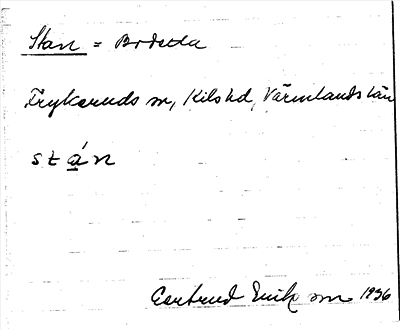 Stan = Brdetta
Frykeruds sn, Kils hd, Värmlands län
stá̱n
Gertrud Erik sn 1936